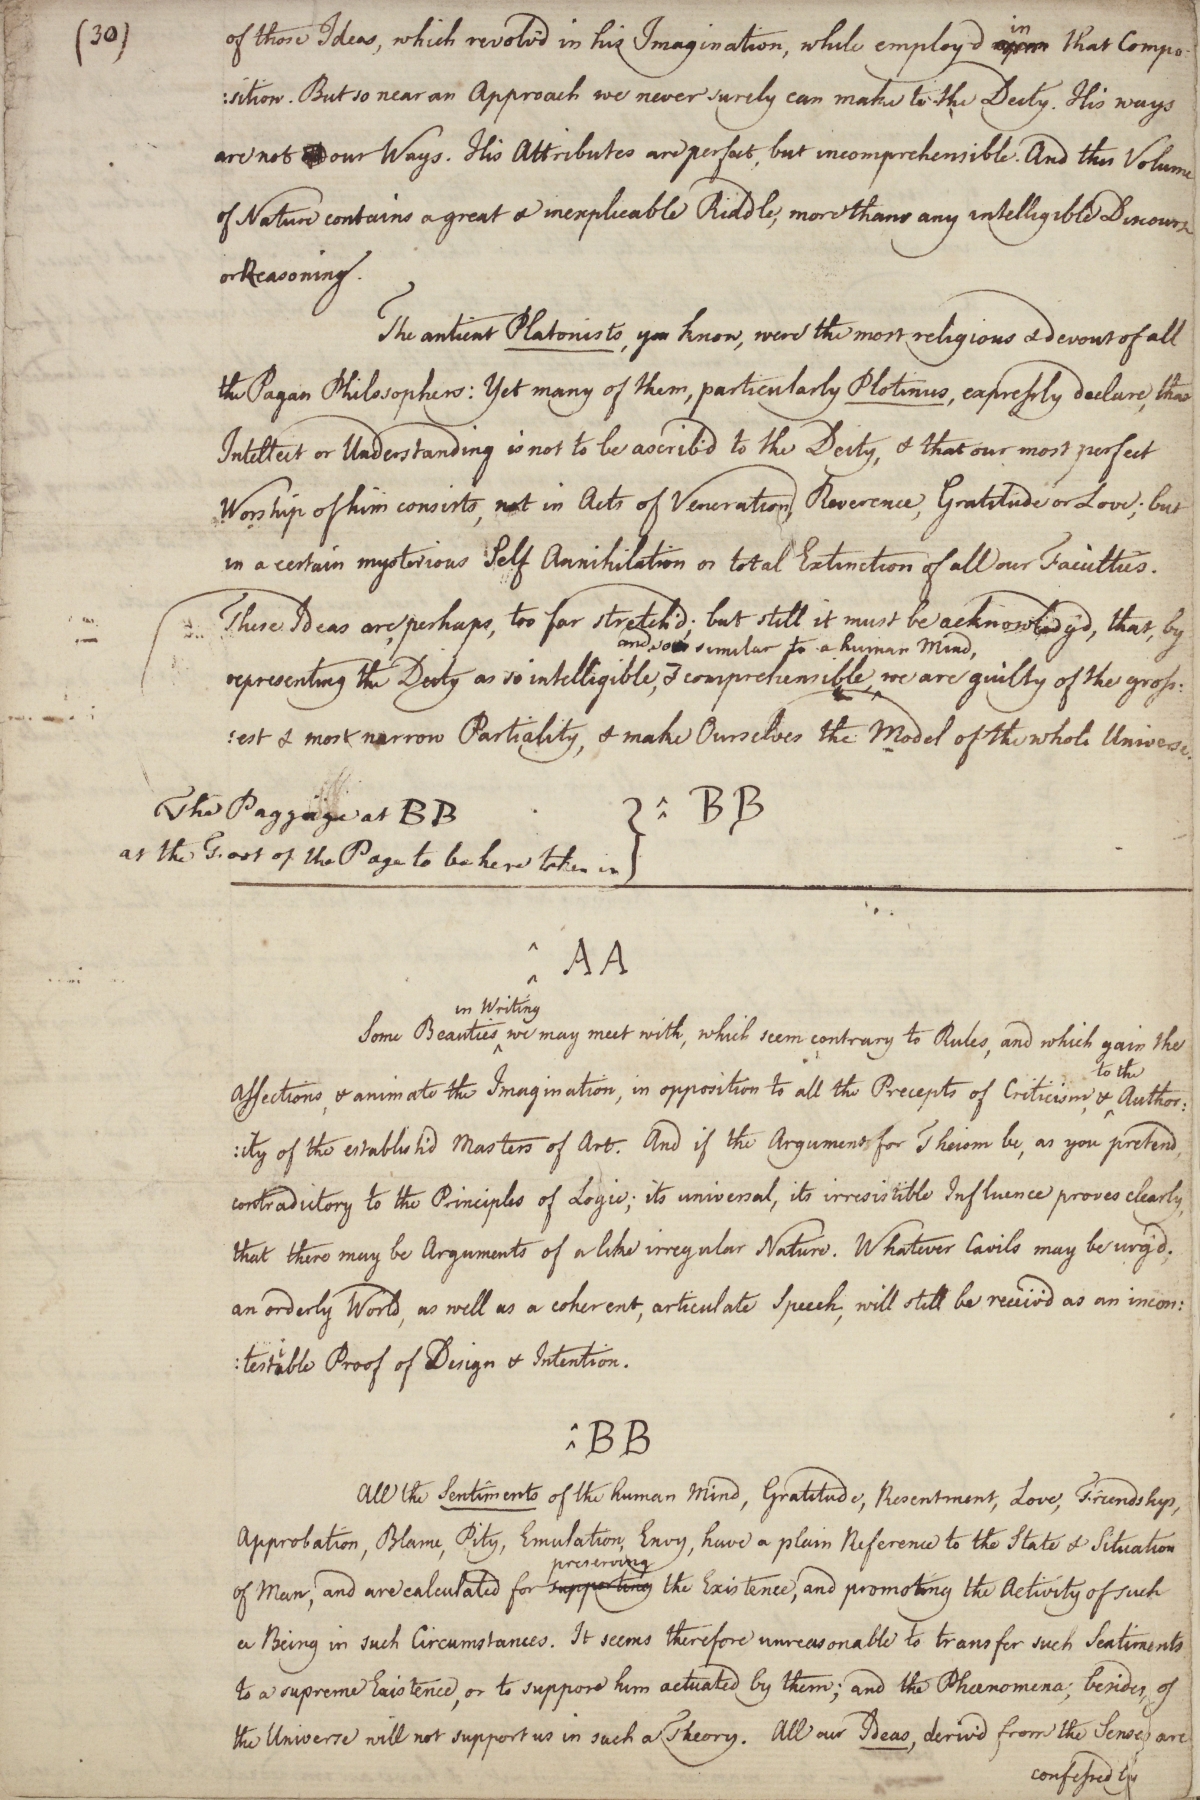 (30)
of those Ideas, which revolv'd in his Imagination, while employ'd in that Compo-
:sition. But so near an Approach we never surely can make to the Deity. His ways
are not our Ways. His Attributes are perfect, but incomprehensible. And this Volume
of Nature contains a great & inexplicable Riddle, more than any intelligible Discourse
or Reasoning.
The antient Platonists, you know, were the most religious & devout of all
the Pagan Philosophers: Yet many of them, particularly Plotinus, expressly declare, that
Intellect or Understanding is not to be ascrib'd to the Deity, & that our most perfect
Worship of him consists, not in Acts of Veneration, Reverence, Gratitude or Love; but
in a certain mysterious Self Annihilation or total Extinction of all our Faculties.
These Ideas are, perhaps, too far stretch'd; but still it must be acknowledg'd, that, by
and so similar to a human Mind,
representing the Deity as so intelligible, & comprehensible, we are guilty of the gross:
:est & most narrow Partiality, & make Ourselves the Model of the whole Universe.
The Paggage at BB
at the Foot of the Page to be here taken in } BB
AA
in Writing
Some Beauties we may meet with, which seem contrary to Rules, and which gain the
to the
Affections, & animate the Imagination, in opposition to all the Precepts of Criticism, & Author:
:ity of the establish'd Masters of Art. And if the Argument for Theism be, as you pretend,
contradictory to the Principles of Logic; its universal, its irresistible Influence proves clearly,
that there may be Arguments of a like irregular Nature. Whatever Cavils may be urg'd;
an orderly World, as well as a coherent, articulate Speech, will still be receiv'd as an incon:
:testible Proof of Design & Intention.
BB
All the Sentiments of the human Mind, Gratitude, Resentment, Love, Friendship,
Approbation, Blame, Pity, Emulation, Envy, have a plain Reference to the State & Situation
preserving
of Man, and are calculated for supporting the Existence, and promoting the Activity of such
a Being in such Circumstances. It seems therefore unreasonable to transfer such Sentiments
to a supreme Existence, or to suppose him actuated by them; and the Phænomena, besides, of
the Universe will not support us in such a Theory. All our Ideas, deriv'd from the Senses, are
confessedly